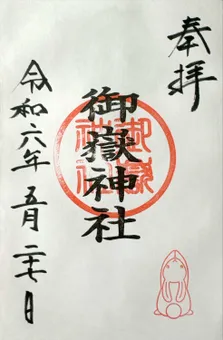 奉拝
御嶽神社
御嶽神社
令和六年五月二十七日